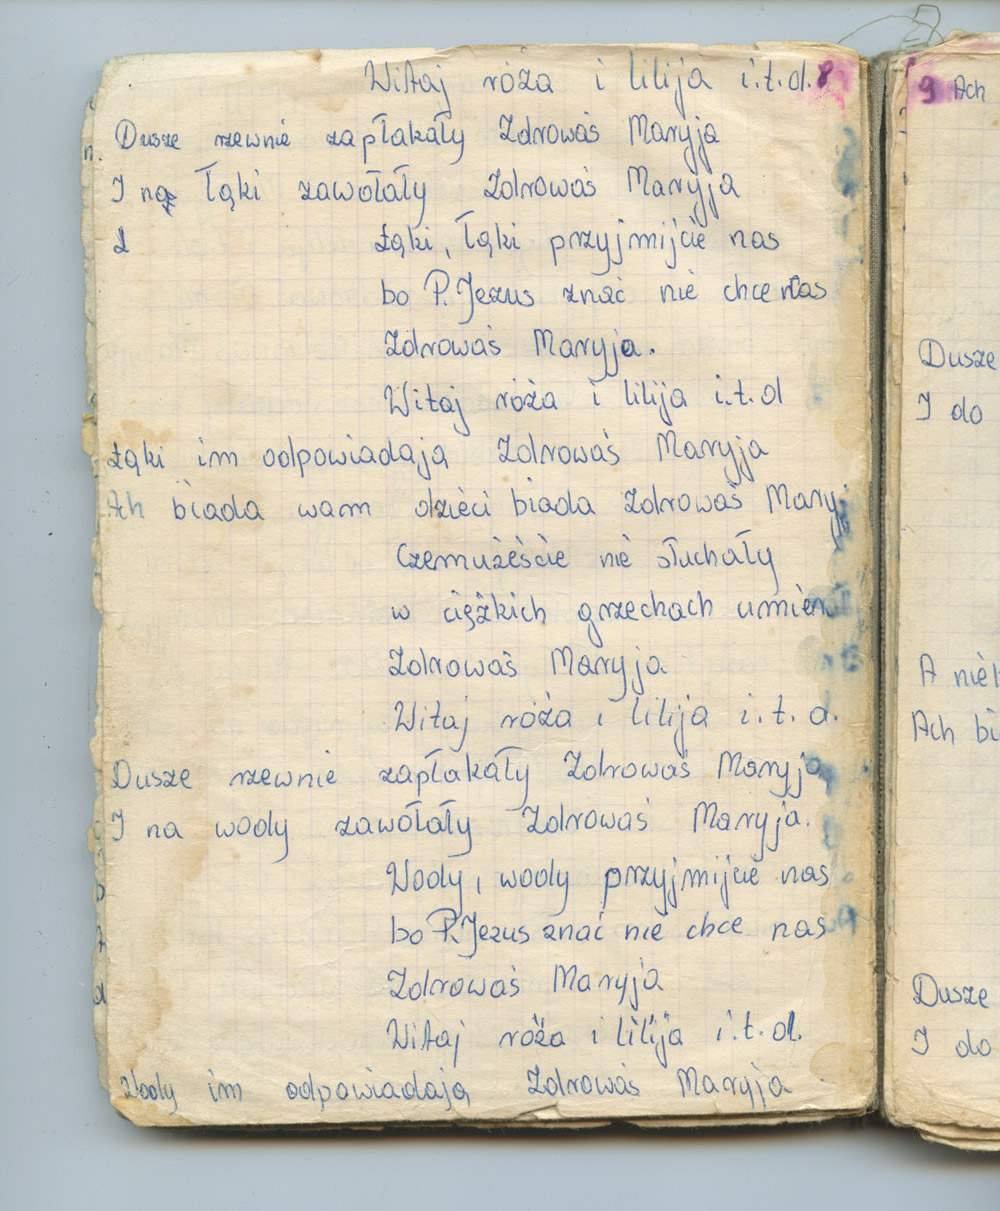 Witaj róża i lilija i.t.d. 8
Dusze rzewnie zapłakały Zdrowaś Maryja
I na łąki zawołały Zdrowaś Maryja
Łąki, łąki przyjmijcie nas
bo P. Jezus znać nie chce nas
Zdrowaś Maryja.
Witaj róża i lilija i.t.d
Łąki im odpowiadają Zdrowaś Maryja
Ach biada wam dzieci biada Zdrowaś Maryj
Czemużeście nie słuchały
w ciężkich grzechach
Zdrowaś Maryja
Witaj róża i lilija i.t.d.
Dusze rzewnie zapłakały Zdrowaś Maryja
I na wody zawołały Zdrowaś Maryja.
Wody, wody przyjmijcie nas
bo P. Jezus znać nie chce nas
Zdrowaś Maryja
Witaj róża i lilija i.t.d.
Wody im odpowiadają Zdrowaś Maryja
9 Ach
Dusze
I do
A
Ach
Dusze
I do